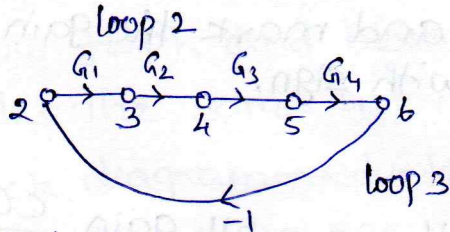 loop 2
G1 G2 G3 G4
2 3 4 5 6
loop 3
-1